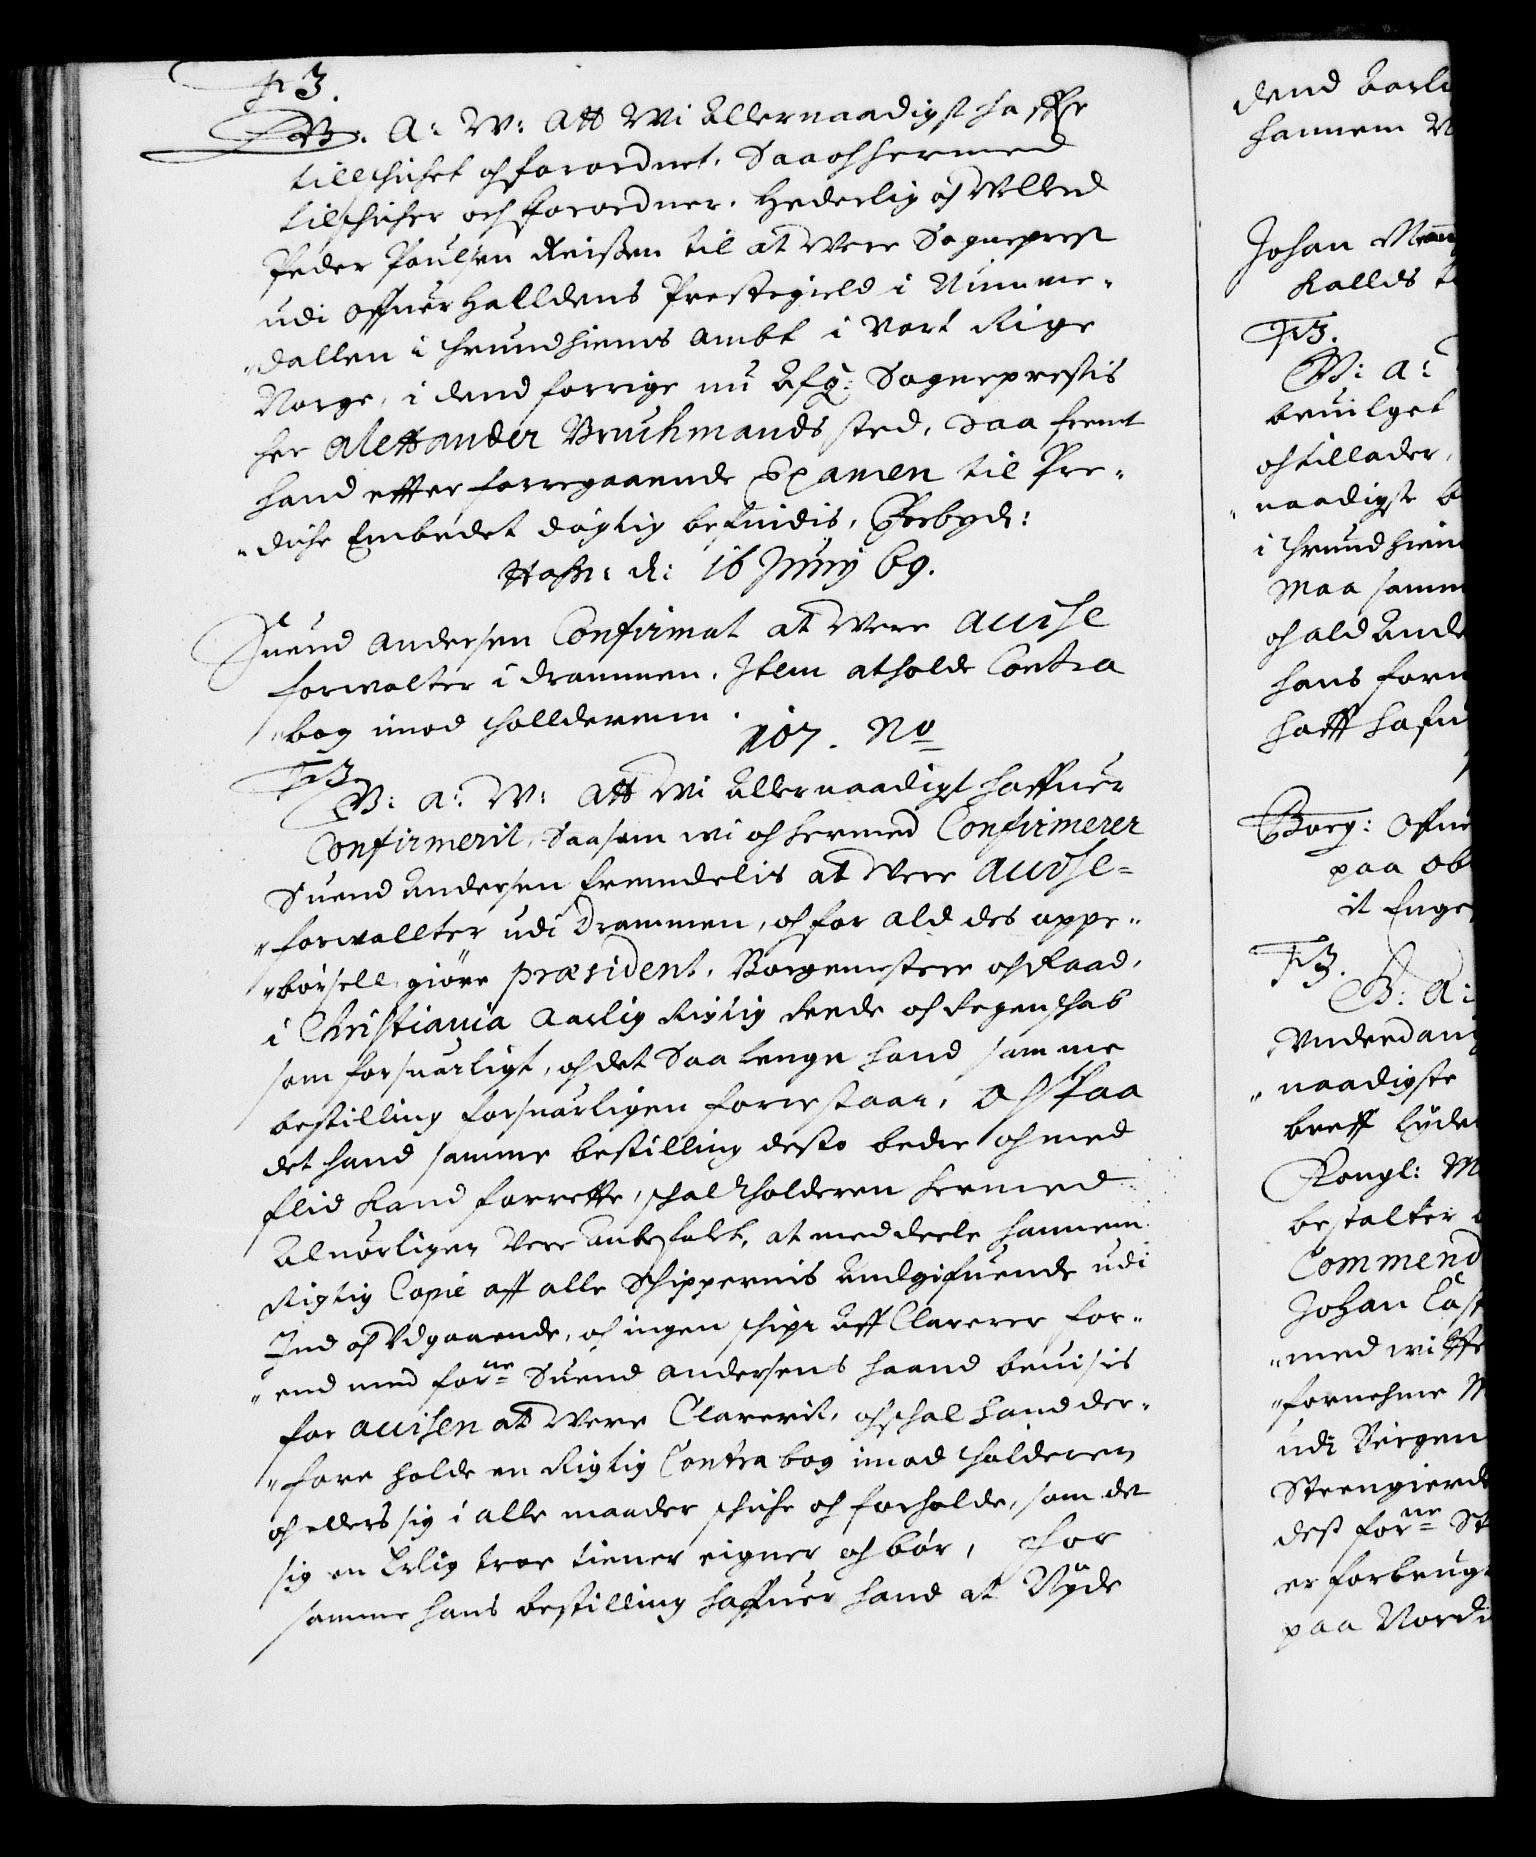 F3.
G: A: W: Att Wi Allernaadigst haffe
tillschichet och forordnet, Saa och hermed
tilschicher och forordner, Hederlig och Vellerd
Peder Poulsen til at were Sogneprest
udi Offuer Halldens Prestegield i Numme-
dallen i Trundhiems Ambt i Vort Rige
Norge, i dend forrige nu Afg: Sogneprestis
her Alexander Bruchmands sted, Saa fremt
hand effter forregaaende Examen til Pre-
diche Embedet døgtig befindis, Forbyd:
Hafn: d: 16 Junij 69.
Suend Andersen Confirmat at were Accise
forwalter i Drammen. Item at holde Contra
bog imod Tollderenn.
107. No
F3
G: A: W: Att Wi Allernaadigst haffuer
Confirmerit, Saasom wi och hermed Confirmerer
Suend Andersen fremdelis at were Accise-
forwallter udi Drammen, och for ald des oppe-
børsell giøre præsident, Borgemestere och Raad,
i Christiania Aarlig Rigtig Reede och Regenschab
som forsuarligt, och det Saa lenge hand samme
bestilling forsuarligen forrestaar, och Paa
det hand samme bestilling desto bedre och med
flid kand forrette, schal tholderen hermed
Aluorligen were Anbefalt, at meddeele hannem
Rigtig Copie aff alle Schippernis Andgifuende udi
Ind och Udgaaende, och ingen schipe Aff Clarerer for-
end med forne Suend Andersens haand beuisis
for accisen at were Clarerit, och schal hand der-
fore holde en Rigtig Contra bog imod tholderen
och ellers sig i alle maader schiche och forholde, som det
sig en Erlig troe tiener eigner och bør, For
samme hans bestilling haffuer hand at Nyde
dend
hannem
Johan
Kallds
F3.
G: A:
beuilget
och tillader,
naadigst
i Trundhiem
Maa samm
och ald Ande
hans forn
haff hafu
Borg: Offue
paa
it Enge
F3.
G: A:
Underdan
naadigste
breff lyde
Kongl: M
bestalter
Commend
Johan
med wi
fornehme
udi Bergen
Steengierd
dess forne St
er forbrug
paa Nord